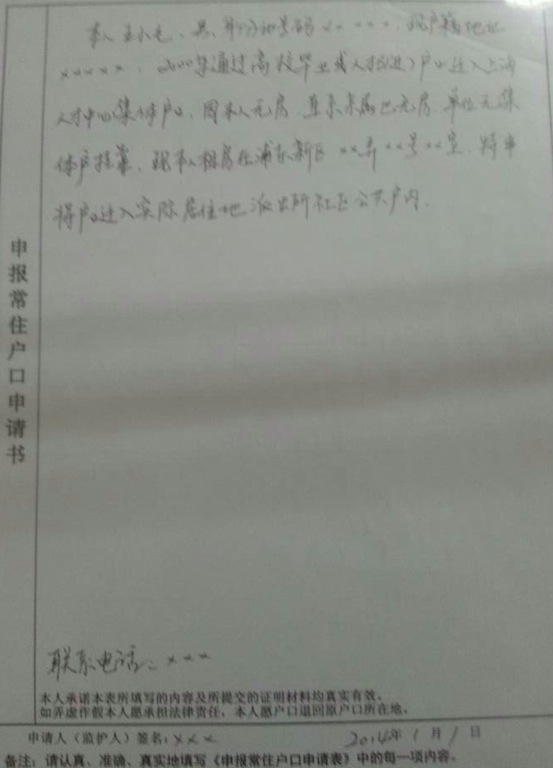 申报常住户口申请书
本人王小毛、男、身份证号码xx xxx，现户籍地址
xxxxx，2000年通过高校毕业或人才引进）户口迁入上海
人才中心集体户口，因本人无房，直系亲属也无房，单位无集
体户挂靠，现本人租房在浦东新区xx弄xx号xx室，特申
将户口迁入实际居住地派出所社区公共户内.
联系电话：xxx
本人承诺本表所填写的内容及所提交的证明材料均真实有效。
如弄虚作假本人愿承担法律责任，本人愿户口退回原户口所在地。
申请人（监护人）签名：xxx 2014年1月1日
备注：请认真、准确、真实地填写《申报常住户口申请表》中的每一项内容。